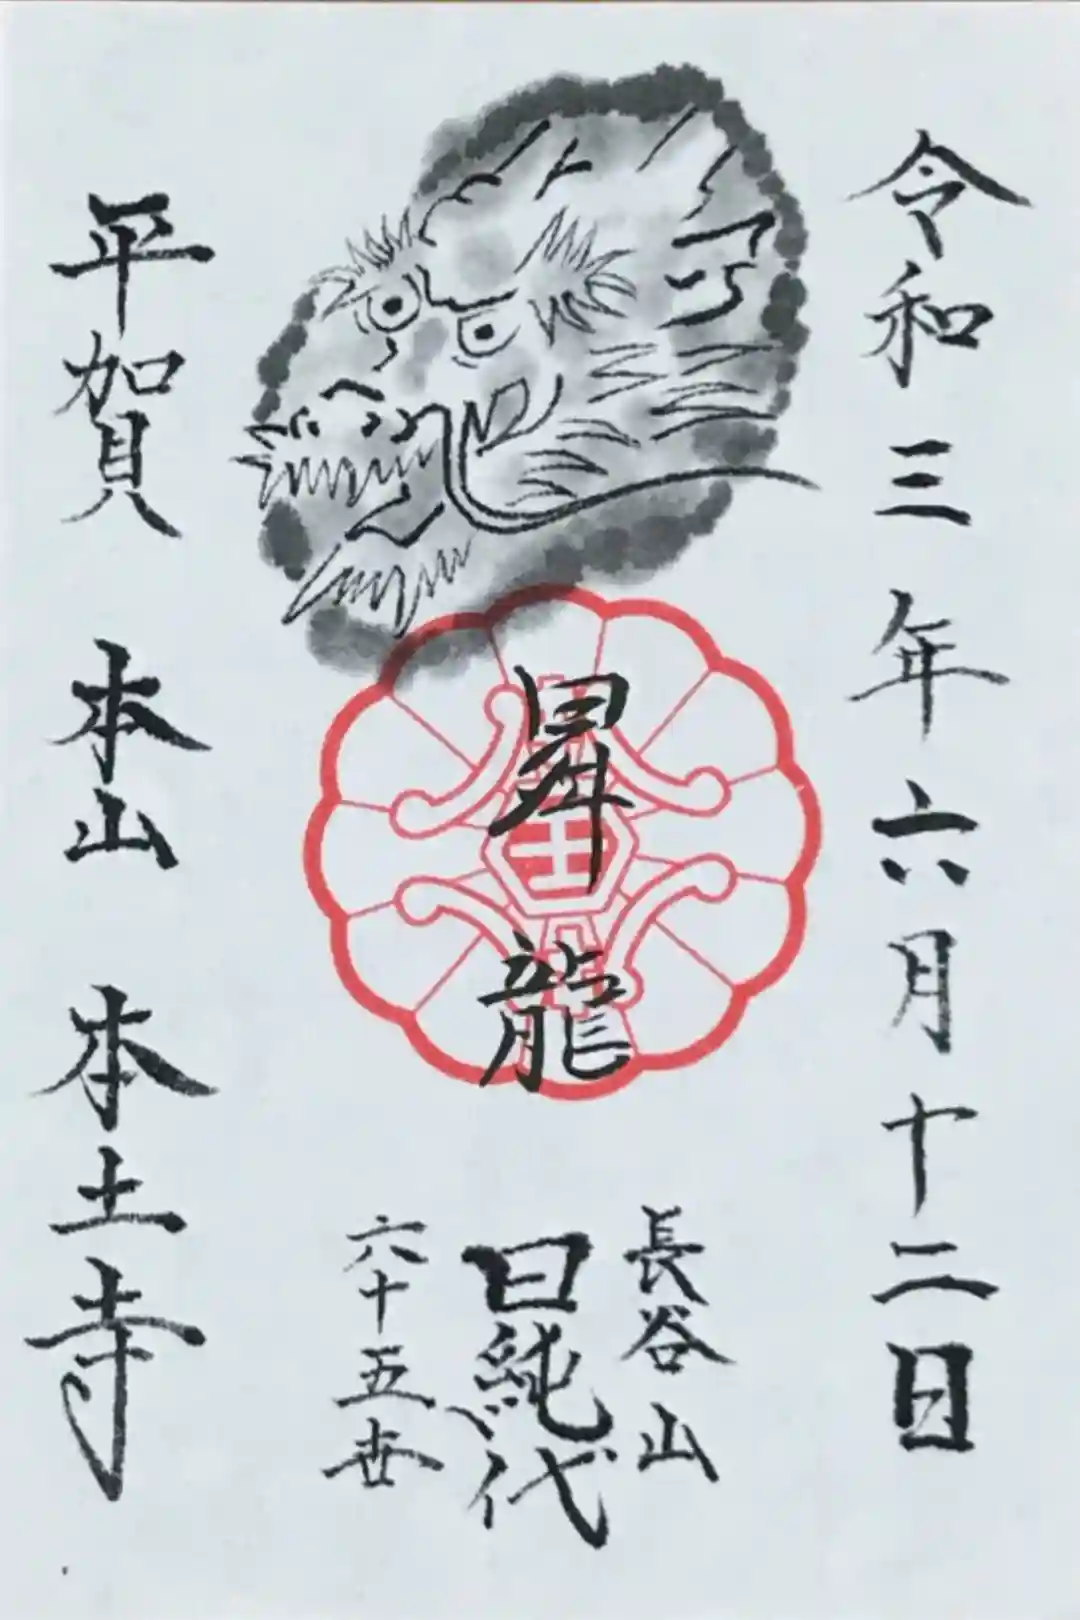 令和三年六月十二日
昇龍
長谷山
日純代
六十五世
平賀 本山 本土寺